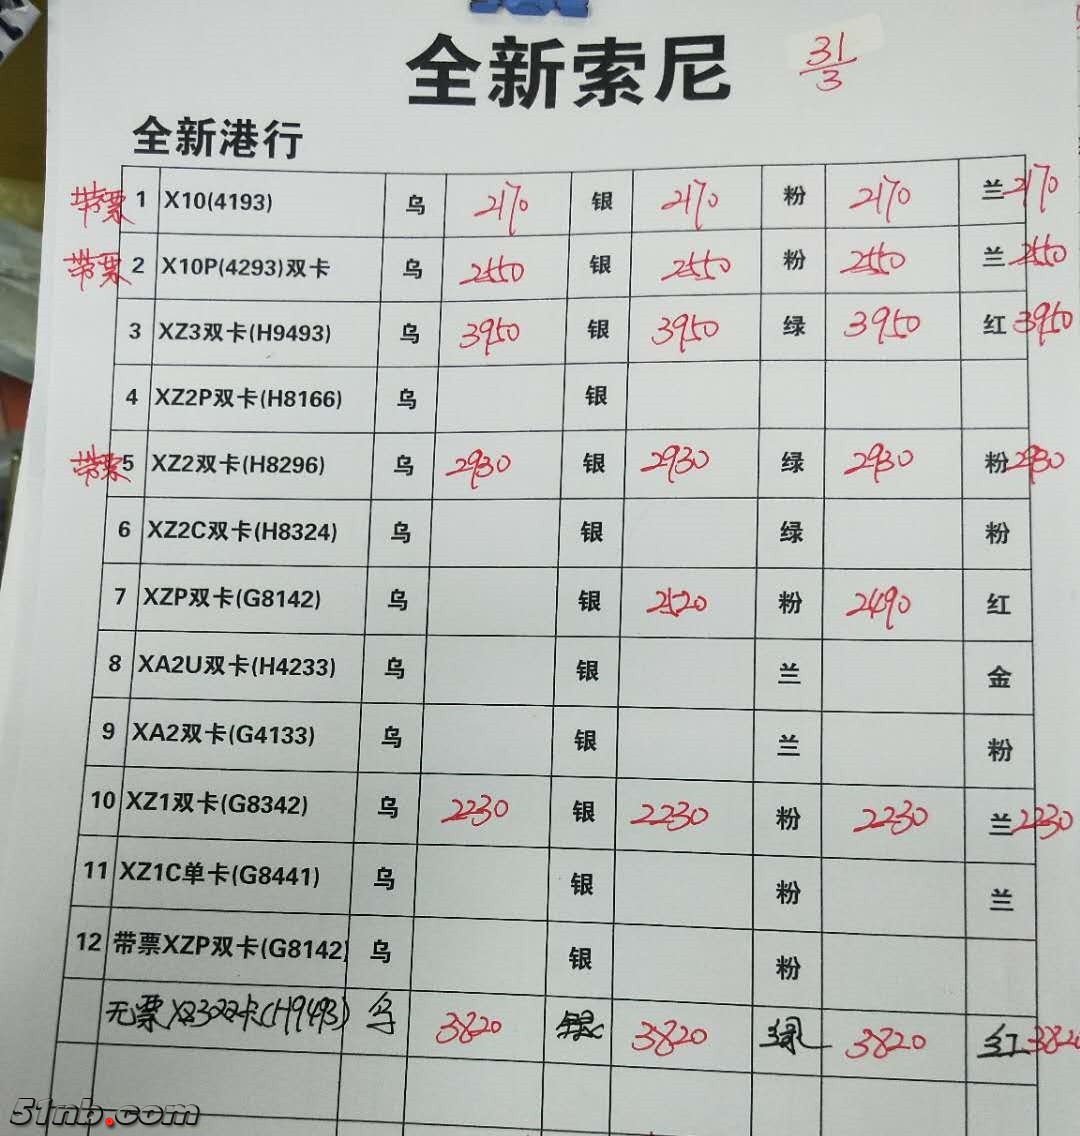 全新索尼 31/3
全新港行
带票 1 X10(4193) 乌 2170 银 2170 粉 2170 兰 2170
带票 2 X10P(4293)双卡 乌 2550 银 2550 粉 2550 兰 2550
3 XZ3双卡(H9493) 乌 3950 银 3950 绿 3950 红 3950
4 XZ2P双卡(H8166) 乌 银
带票 5 XZ2双卡(H8296) 乌 2930 银 2930 绿 2930 粉 2930
6 XZ2C双卡(H8324) 乌 银 绿 粉
7 XZP双卡(G8142) 乌 银 2520 粉 2490 红
8 XA2U双卡(H4233) 乌 银 兰 金
9 XA2双卡(G4133) 乌 银 兰 粉
10 XZ1双卡(G8342) 乌 2230 银 2230 粉 2230 兰 2230
11 XZ1C单卡(G8441) 乌 银 粉 兰
12 带票XZP双卡(G8142) 乌 银 粉
无票XZ3双卡(H9493) 乌 3820 银 3820 绿 3820 红 3820
51nb.com